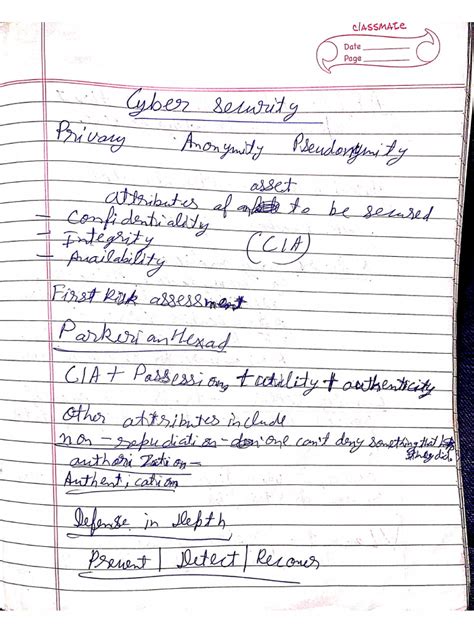 classmate
Date
Page
Cyber security
Privacy Anonymity Pseudonymity
asset
attributes of to be secured
- Confidentiality
- Integrity (CIA)
- Availability
First Risk assessment
Parkerian Hexad
CIA + Possession + utility + authenticity
Other attributes include
non-repudiation - one can't deny something that
they did.
authorization -
Authentication
Defense in Depth
Prevent | Detect | Recover